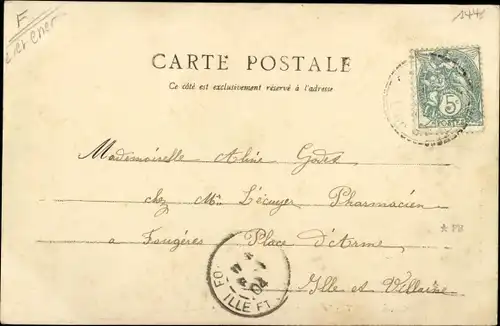 F
1441
CARTE POSTALE
Ce côté est exclusivement réservé à l'adresse
5
POSTES
Mademoiselle Aline Godet
chez Mr. L'écuyer Pharmacien
a Fougères Place d'Arme
* PH
Ille et Villaine
FO
04
ILLE ET